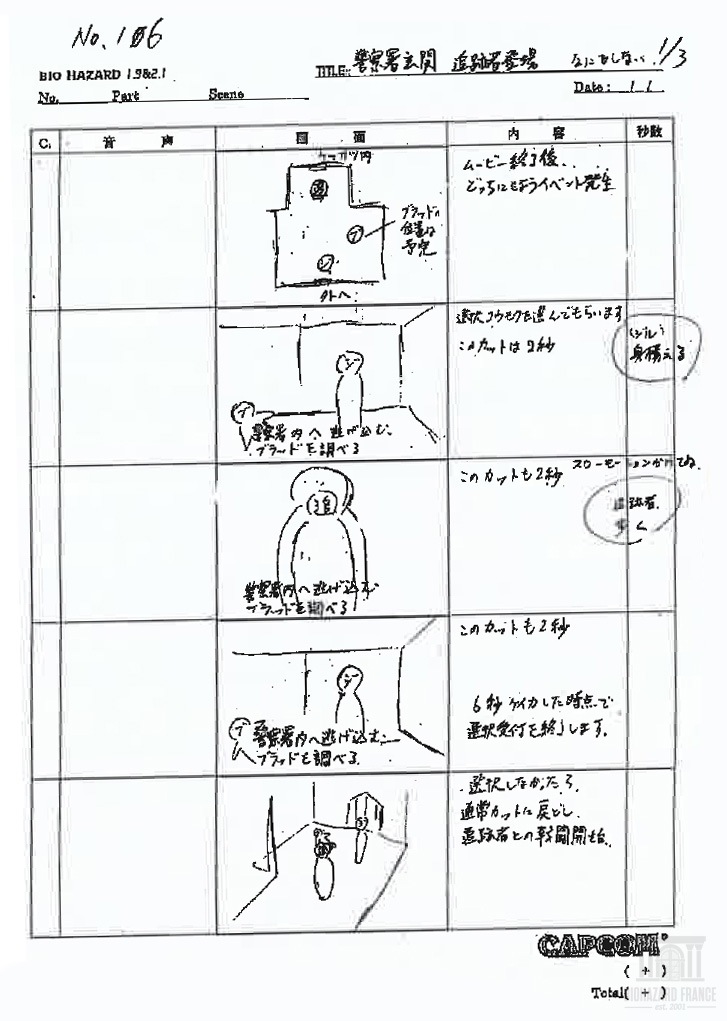 No.106
BIO HAZARD 1.9&2.1
TITLE: 警察署玄関 追跡者登場 なにもしない 1/3
No. Part Scene
Date: / /
C. 音 声 画 面 内 容 秒数
ケーサツ内
追
ブ
ジ
ブラッドの
位置は
予定
外トへ
ムービー終了後、
どっちにしようイベント発生
選択コウモクを選んでもらいます
このカットは2秒
(ジル)
身構える
ジ
ブ
警察署内へ逃げ込む
ブラッドを調べる
このカットも2秒
スローモーションかけてね
追跡者
歩く
追
警察署内へ逃げ込む
ブラッドを調べる
このカットも2秒
6秒ケイカした時点で
選択受付を終了します。
ジ
ブ
警察署内へ逃げ込む
ブラッドを調べる
選択しなかったら
通常カットに戻どし
追跡者との戦闘開始
追
ジ
CAPCOM
( + )
Total( + )
BIOHAZARD FRANCE
est. 2001